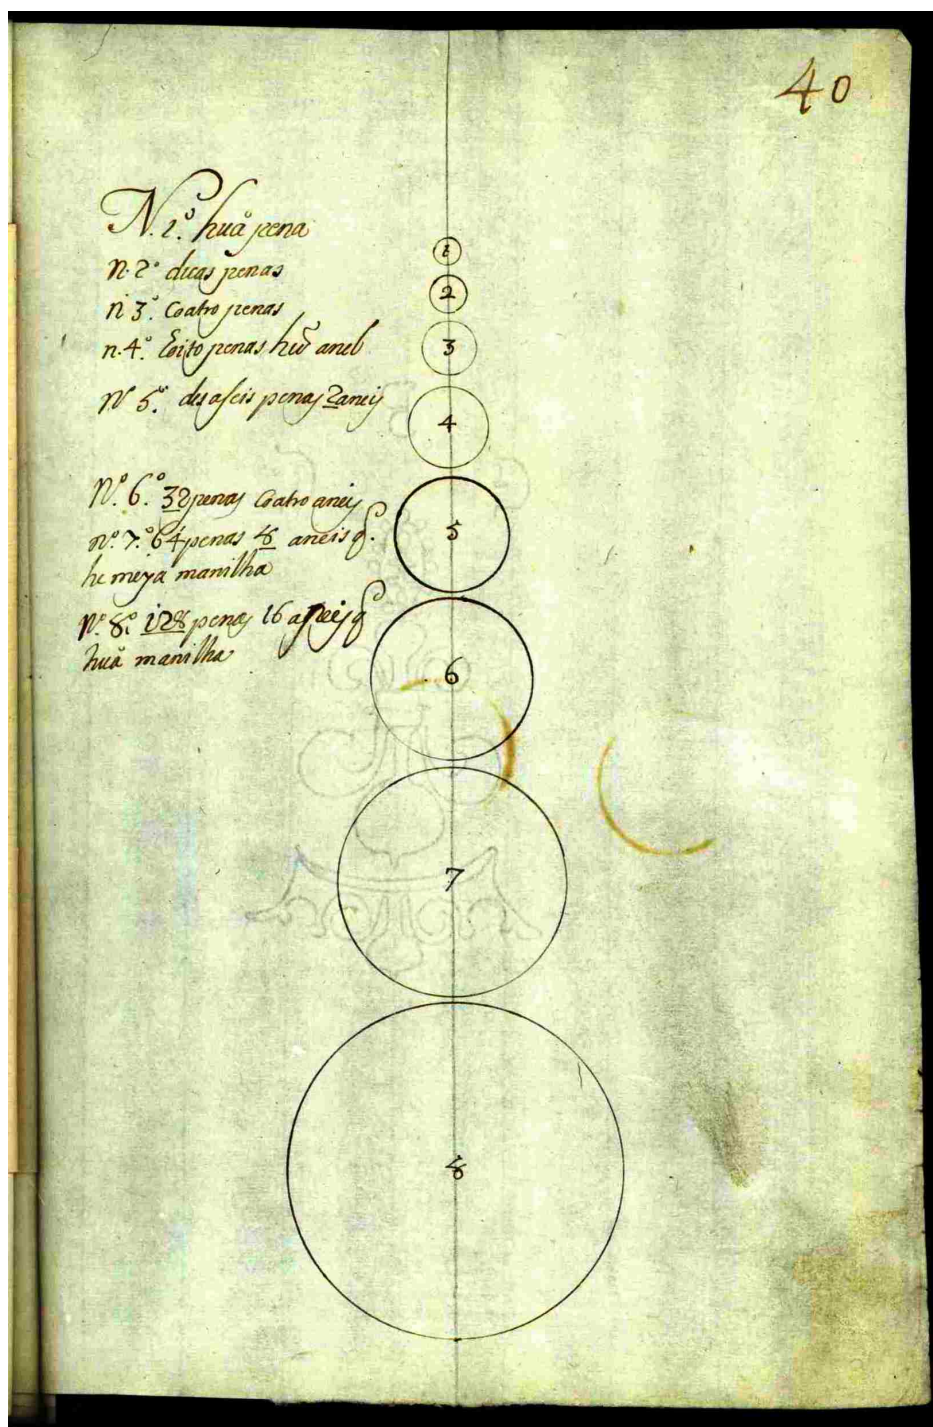 40
N. 1.º huã pena
n. 2º duas penas
n 3.º Coatro penas
n. 4.º Coito penas hũ anel
Nº 5.º desaseis penas 2 aneis
Nº. 6.º 32 penas Coatro aneis
nº. 7.º 64 penas 8 aneis q.
he meya manilha
Nº. 8.º 128 penas 16 aneis q
huã manilha
1
2
3
4
5
6
7
8